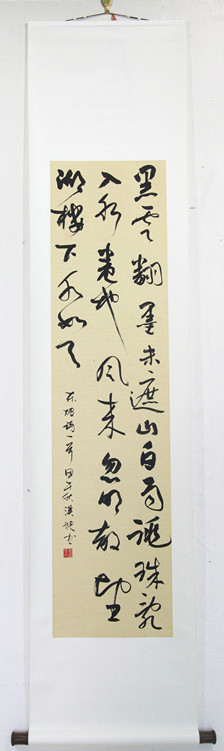 黑雲翻墨未遮山白雨跳珠亂
入船卷地风来忽吹散望
湖樓下水如天
东坡詩一首甲午秋漢